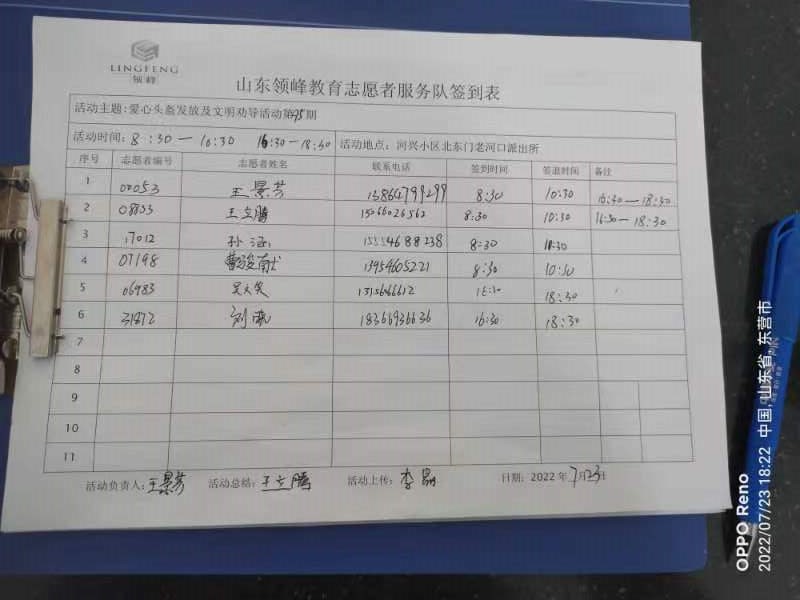 LINGFENG
领峰
山东领峰教育志愿者服务队签到表
活动主题:爱心头盔发放及文明劝导活动第95期
活动时间:8:30—10:30 16:30—18:30 活动地点:河兴小区北东门老河口派出所
序号 志愿者编号 志愿者姓名 联系电话 签到时间 签退时间 备注
1 00053 王景芳 13864799299 8:30 10:30 16:30—18:30
2 08833 王立腾 15066026562 8:30 10:30 16:30—18:30
3 17012 孙涵 15554688238 8:30 10:30
4 07198 曹浚献 13954605221 8:30 10:30
5 06983 18:30
6 18366936636 16:30 18:30
7
8
9
10
11
活动负责人:王景芳 活动总结:王立腾 活动上传:李晶 日期:2022年7月23日
OPPO Reno
2022/07/23 18:22 中国,山东省,东营市